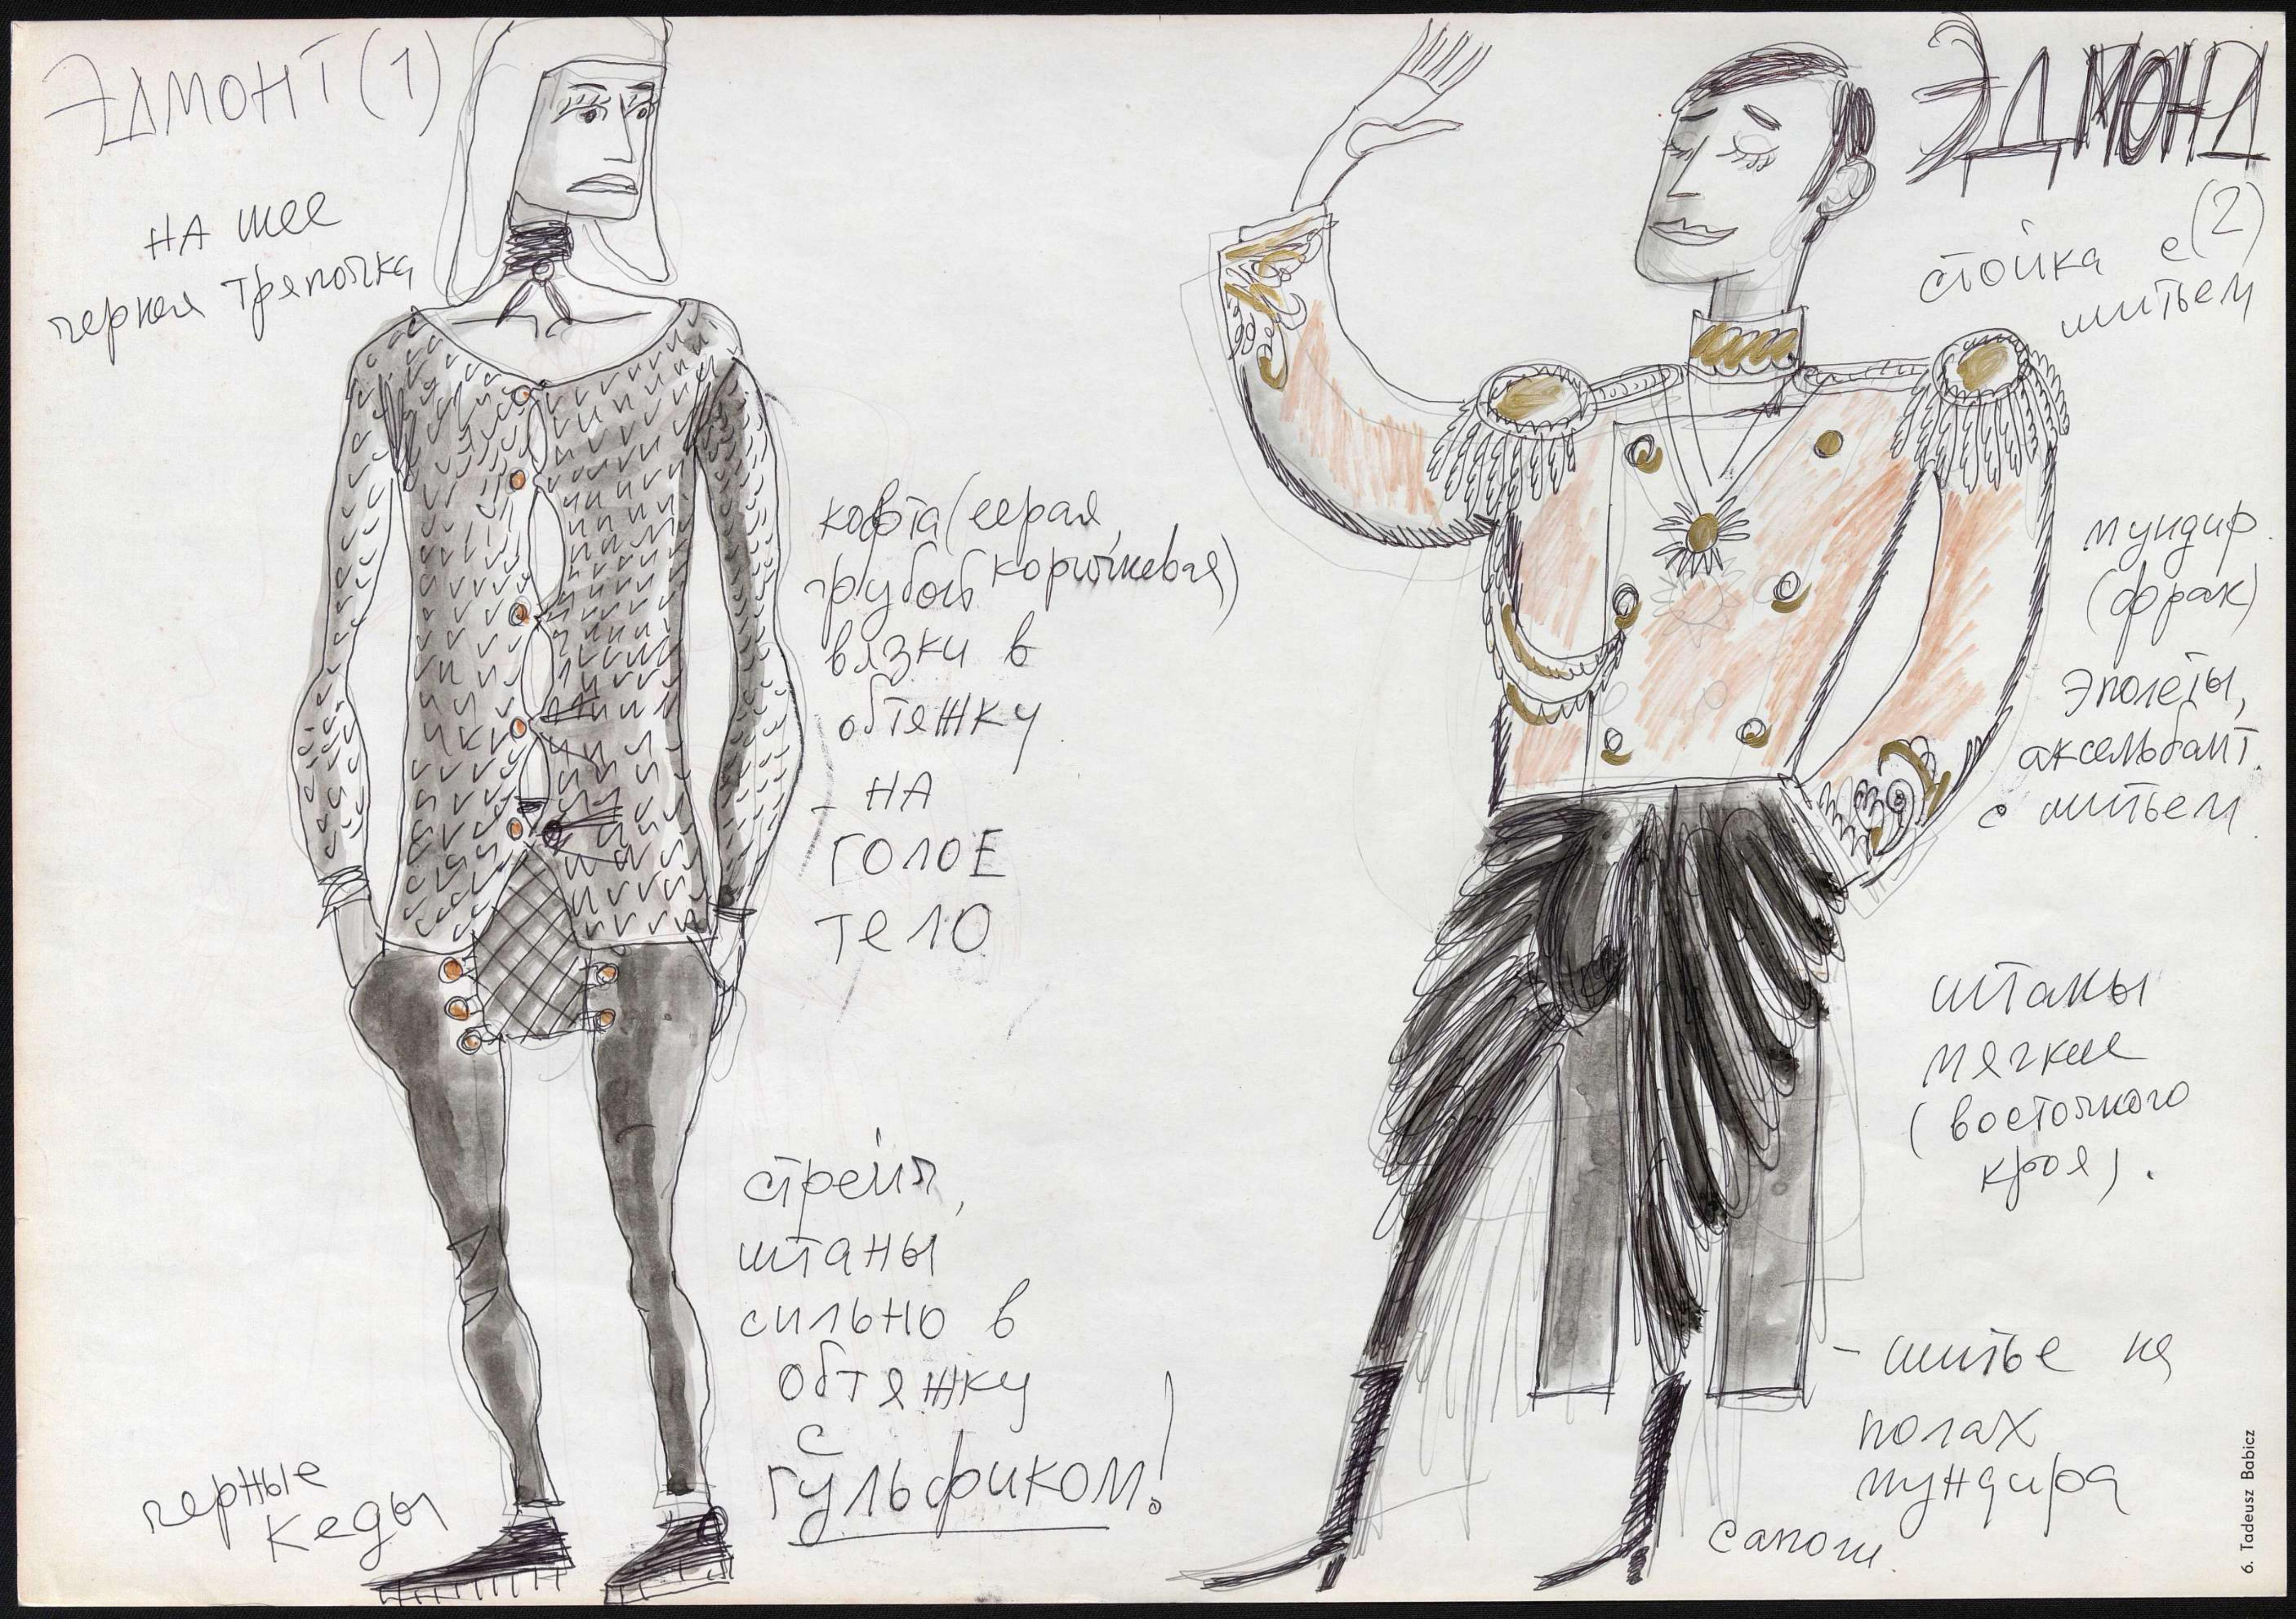 ЭДМОНТ (1)
НА шее
черная тряпочка
кофта (серая,
коричневая)
грубой
вязки в
обтяжку
- НА
ГОЛОЕ
ТЕЛО
стрейч,
штаны
сильно в
обтяжку
с
гульфиком!
черные
кеды
ЭДМОНД
(2)
стойка с
шитьем
мундир
(фрак)
эполеты,
аксельбант
с шитьем
штаны
мягкие
(восточного
кроя).
- шитье на
полах
мундира
сапоги.
6. Tadeusz Babicz